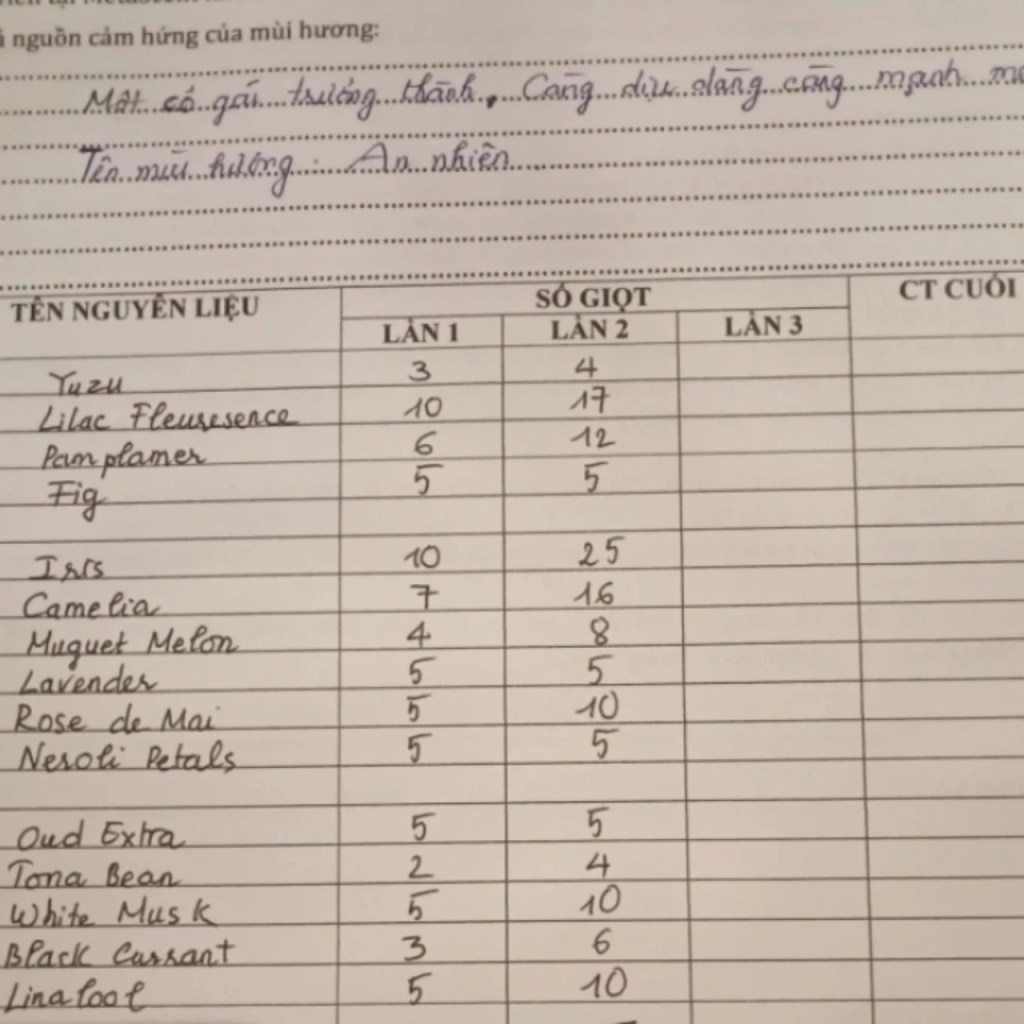 nguồn cảm hứng của mùi hương:
Một cô gái trưởng thành, Càng dịu dàng càng mạnh
Tên mùi hương: An nhiên
TÊN NGUYÊN LIỆU SỐ GIỌT CT CUỐI
LẦN 1 LẦN 2 LẦN 3
Yuzu 3 4
Lilac Fleuresence 10 17
Pamplamer 6 12
Fig 5 5
Iris 10 25
Camelia 7 16
Muguet Melon 4 8
Lavender 5 5
Rose de Mai 5 10
Neroli Petals 5 5
Oud Extra 5 5
Tona Bean 2 4
White Musk 5 10
Black Currant 3 6
Linalool 5 10